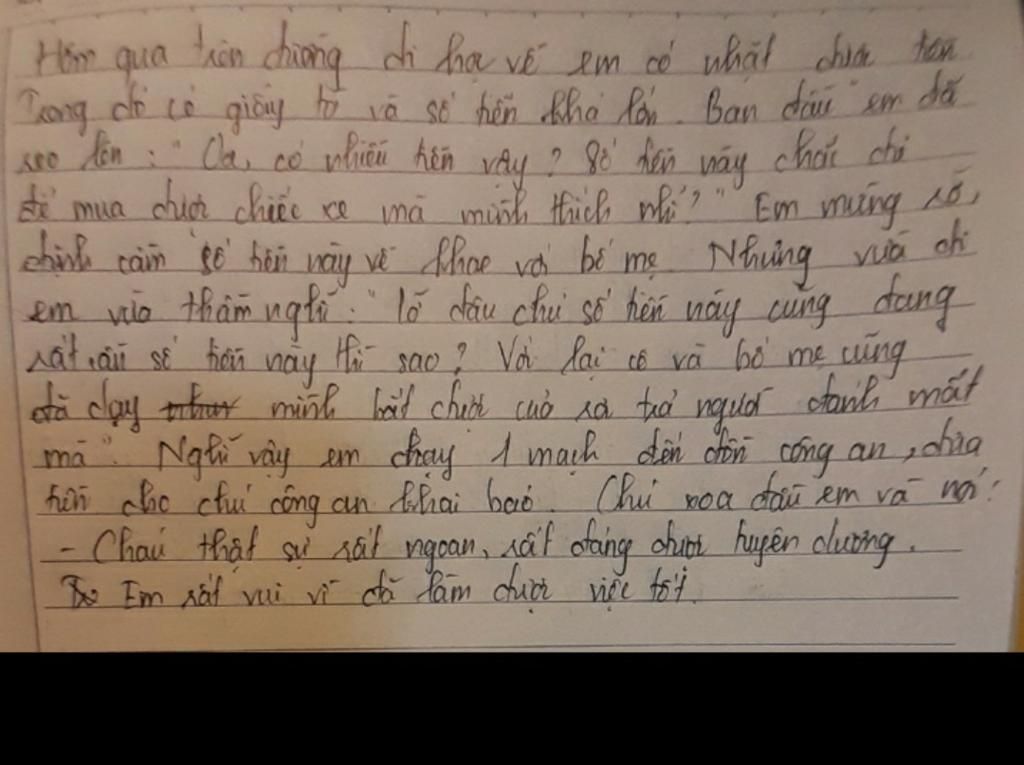 Hôm qua trên đường đi học về em có nhặt được tiền
Trong đó có giấy tờ và số tiền khá lớn. Ban đầu em đã
reo lên: "Oa, có nhiều tiền vậy? Số tiền này chắc đủ
để mua được chiếc xe mà mình thích nhỉ?" Em mừng rỡ,
định cầm số tiền này về khoe với bố mẹ. Nhưng vừa đi
em vừa thầm nghĩ: "lỡ đâu chú số tiền này cũng đang
rất cần số tiền này thì sao? Với lại cô và bố mẹ cũng
đã dạy mình nhặt được của rơi trả người đánh mất
mà". Nghĩ vậy em chạy 1 mạch đến đồn công an, đưa
tiền cho chú công an khai báo. Chú xoa đầu em và nói:
- Cháu thật sự rất ngoan, rất đáng được tuyên dương.
Em rất vui vì đã làm được việc tốt.